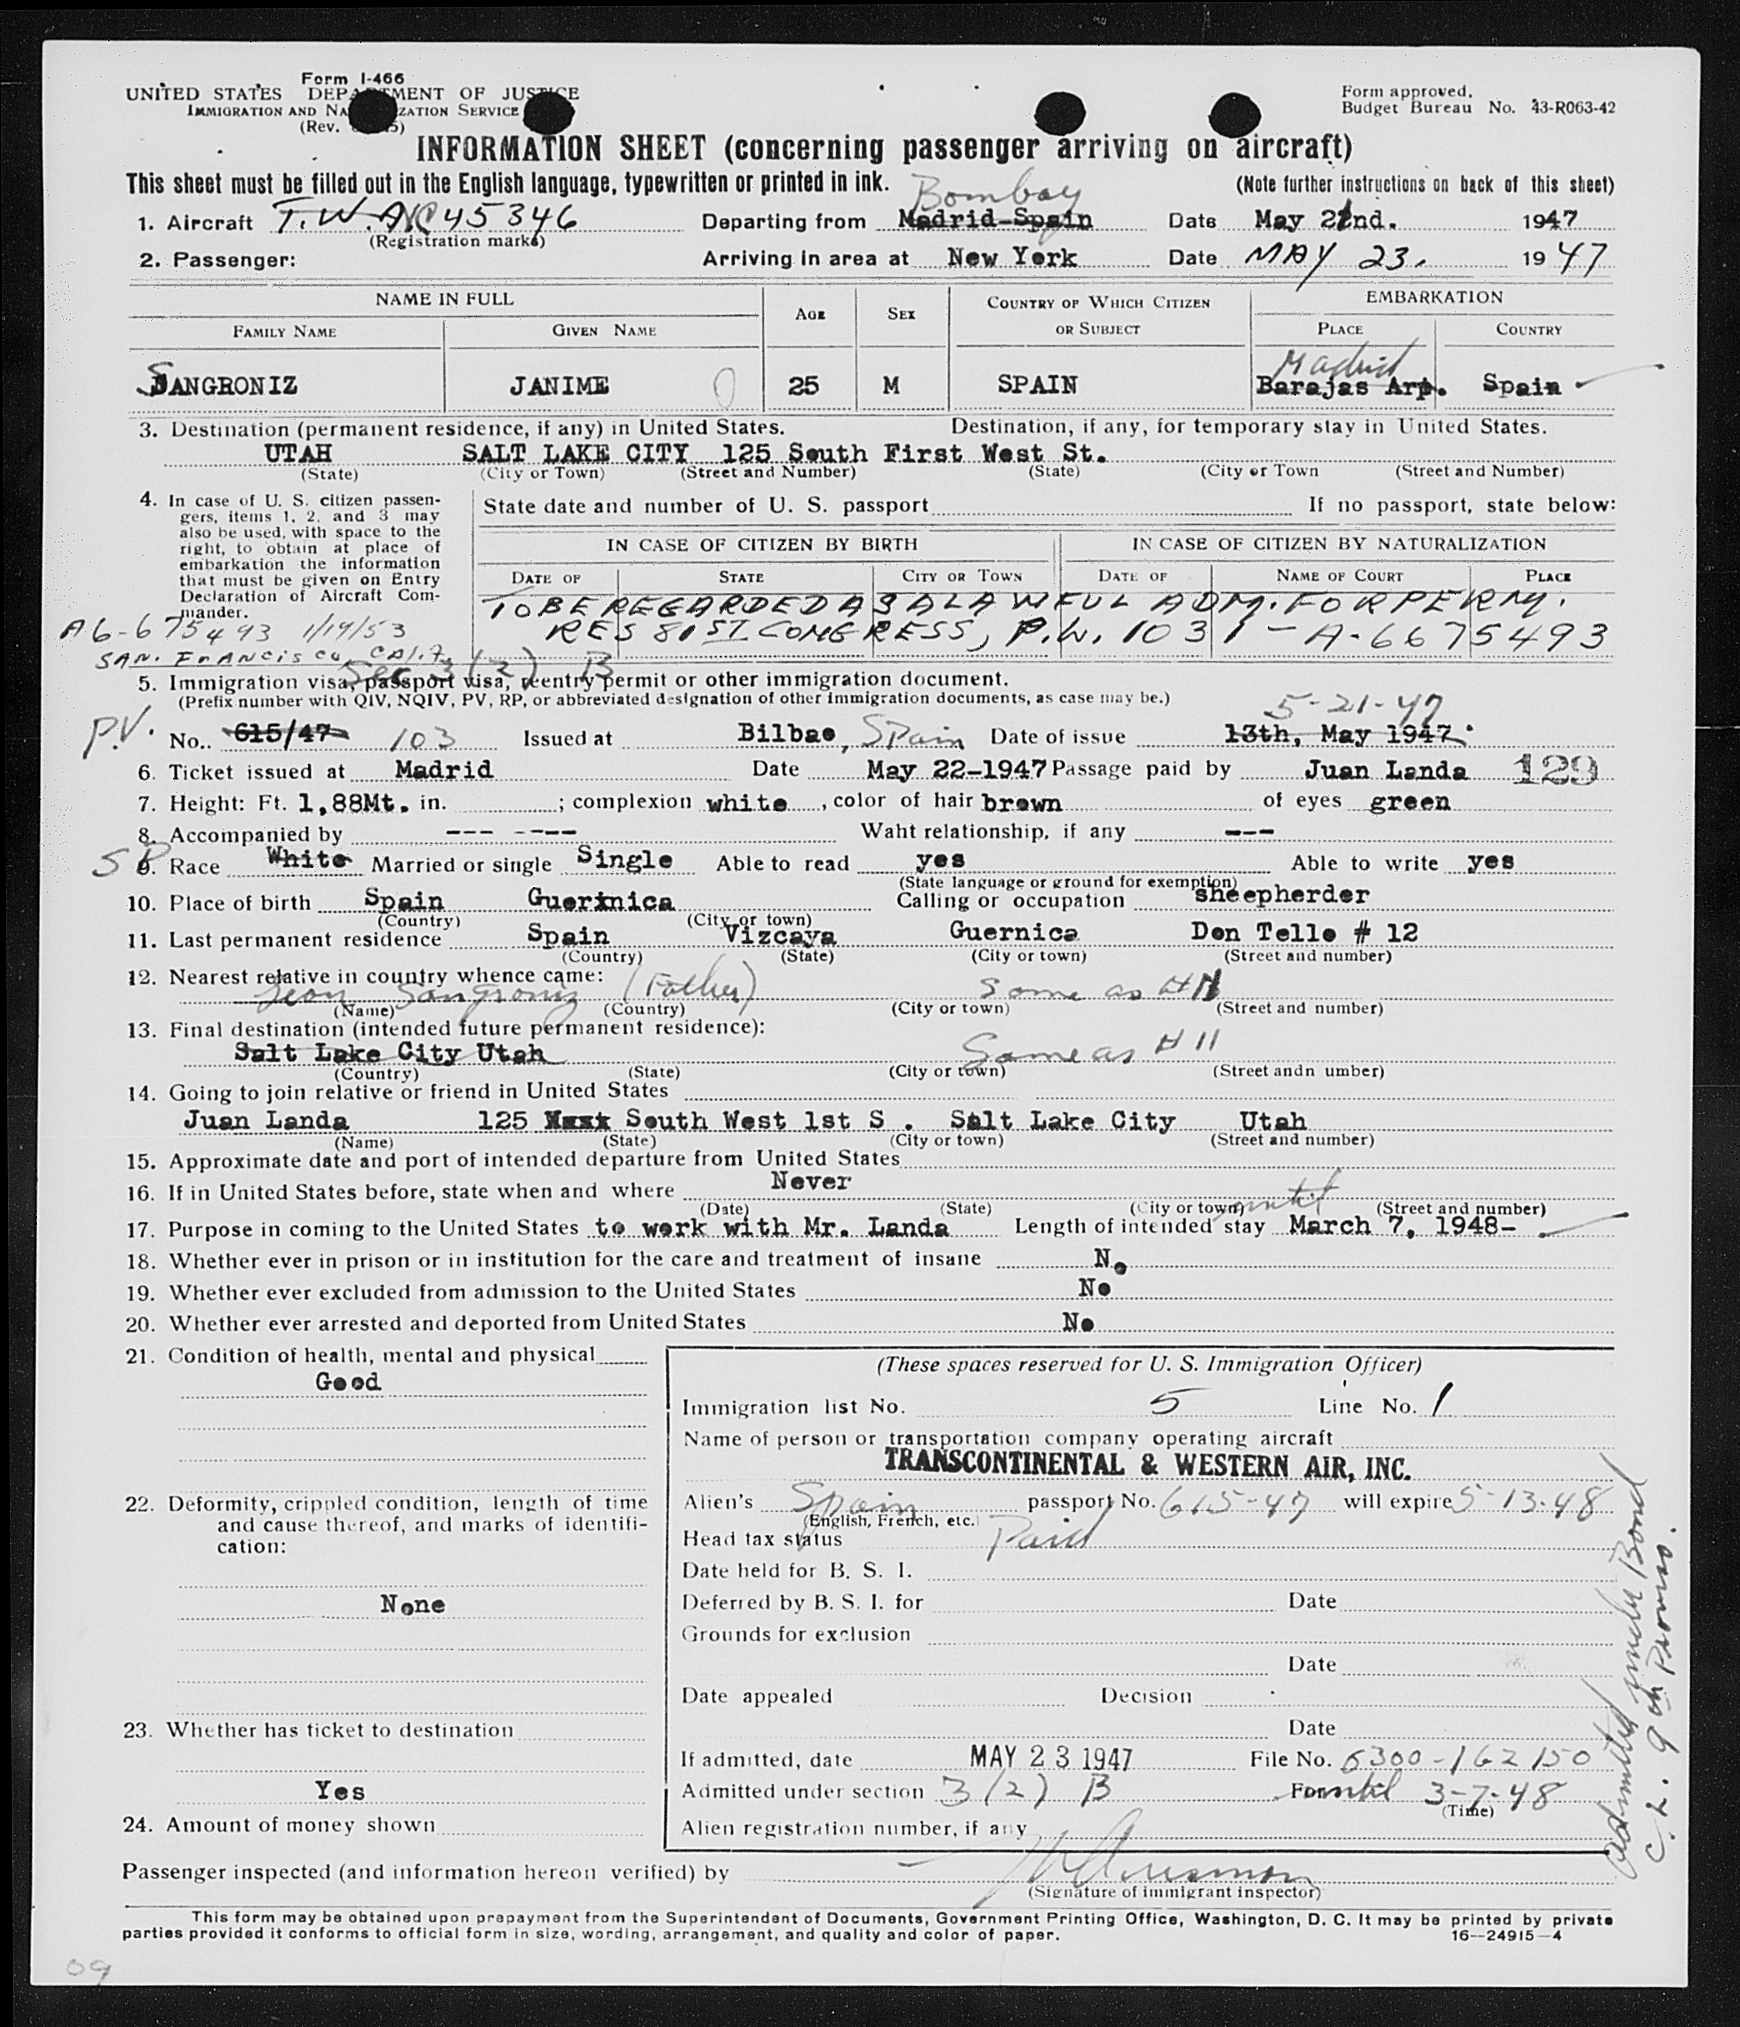 Form I-466
UNITED STATES DEPARTMENT OF JUSTICE
IMMIGRATION AND NATURALIZATION SERVICE
(Rev. 5)
Form approved,
Budget Bureau No. 43-R063-42
INFORMATION SHEET (concerning passenger arriving on aircraft)
This sheet must be filled out in the English language, typewritten or printed in ink.
(Note further instructions on back of this sheet)
Bombay
1. Aircraft T.W.A. NC 45346 Departing from Madrid-Spain Date May 22nd. 1947
(Registration marks)
2. Passenger: Arriving in area at New York Date MAY 23, 1947
NAME IN FULL AGE SEX COUNTRY OF WHICH CITIZEN OR SUBJECT EMBARKATION
FAMILY NAME GIVEN NAME PLACE COUNTRY
Madrid
SANGRONIZ JANIME 25 M SPAIN Barajas Arp. Spain
3. Destination (permanent residence, if any) in United States. Destination, if any, for temporary stay in United States.
UTAH SALT LAKE CITY 125 South First West St.
(State) (City or Town) (Street and Number) (State) (City or Town (Street and Number)
4. In case of U. S. citizen passen-
gers, items 1, 2, and 3 may
also be used, with space to the
right, to obtain at place of
embarkation the information
that must be given on Entry
Declaration of Aircraft Com-
mander.
State date and number of U. S. passport If no passport, state below:
IN CASE OF CITIZEN BY BIRTH IN CASE OF CITIZEN BY NATURALIZATION
DATE OF STATE CITY OR TOWN DATE OF NAME OF COURT PLACE
TO BE REGARDED AS A LAWFUL ADM. FOR PERM.
RES 81ST CONGRESS, P.L. 1031 - A-6675493
A6-675493 1/19/53
SAN. FRANCISCO, CALIF.
Sec 3(2) B
5. Immigration visa, passport visa, reentry permit or other immigration document.
(Prefix number with QIV, NQIV, PV, RP, or abbreviated designation of other immigration documents, as case may be.)
5-21-47
P.V. No.. 615/47 103 Issued at Bilbao, Spain Date of issue 13th, May 1947.
6. Ticket issued at Madrid Date May 22-1947 Passage paid by Juan Landa 129
7. Height: Ft. 1,88Mt. in. ; complexion white , color of hair brown of eyes green
8. Accompanied by --- ---- Waht relationship, if any ---
SP 9. Race White Married or single Single Able to read yes Able to write yes
(State language or ground for exemption)
10. Place of birth Spain Guerinica Calling or occupation sheepherder
(Country) (City or town)
11. Last permanent residence Spain Vizcaya Guernica Don Tello # 12
(Country) (State) (City or town) (Street and number)
12. Nearest relative in country whence came:
Leon Sangroniz (Father) Same as #11
(Name) (Country) (City or town) (Street and number)
13. Final destination (intended future permanent residence):
Salt Lake City Utah Same as # 11
(Country) (State) (City or town) (Street andn umber)
14. Going to join relative or friend in United States
Juan Landa 125 South West 1st S . Salt Lake City Utah
(Name) (State) (City or town) (Street and number)
15. Approximate date and port of intended departure from United States
16. If in United States before, state when and where Never
(Date) (State) (City or town) (Street and number)
until
17. Purpose in coming to the United States to work with Mr. Landa Length of intended stay March 7, 1948-
18. Whether ever in prison or in institution for the care and treatment of insane No
19. Whether ever excluded from admission to the United States No
20. Whether ever arrested and deported from United States No
21. Condition of health, mental and physical
Good
22. Deformity, crippled condition, length of time
and cause thereof, and marks of identifi-
cation:
None
23. Whether has ticket to destination
Yes
24. Amount of money shown
(These spaces reserved for U. S. Immigration Officer)
Immigration list No. 5 Line No. 1
Name of person or transportation company operating aircraft
TRANSCONTINENTAL & WESTERN AIR, INC.
Alien's Spain passport No. 615-47 will expire 5-13-48
(English, French, etc.)
Head tax status Paid
Date held for B. S. I.
Deferred by B. S. I. for Date
Grounds for exclusion
Date
Date appealed Decision
Date
If admitted, date MAY 23 1947 File No. 6300-162150
Admitted under section 3(2) B For until 3-7-48
(Time)
Alien registration number, if any
Admitted under Bond
C.L. 9th Proviso.
Passenger inspected (and information hereon verified) by
(Signature of immigrant inspector)
This form may be obtained upon prepayment from the Superintendent of Documents, Government Printing Office, Washington, D. C. It may be printed by private
parties provided it conforms to official form in size, wording, arrangement, and quality and color of paper. 16—24915-4
09